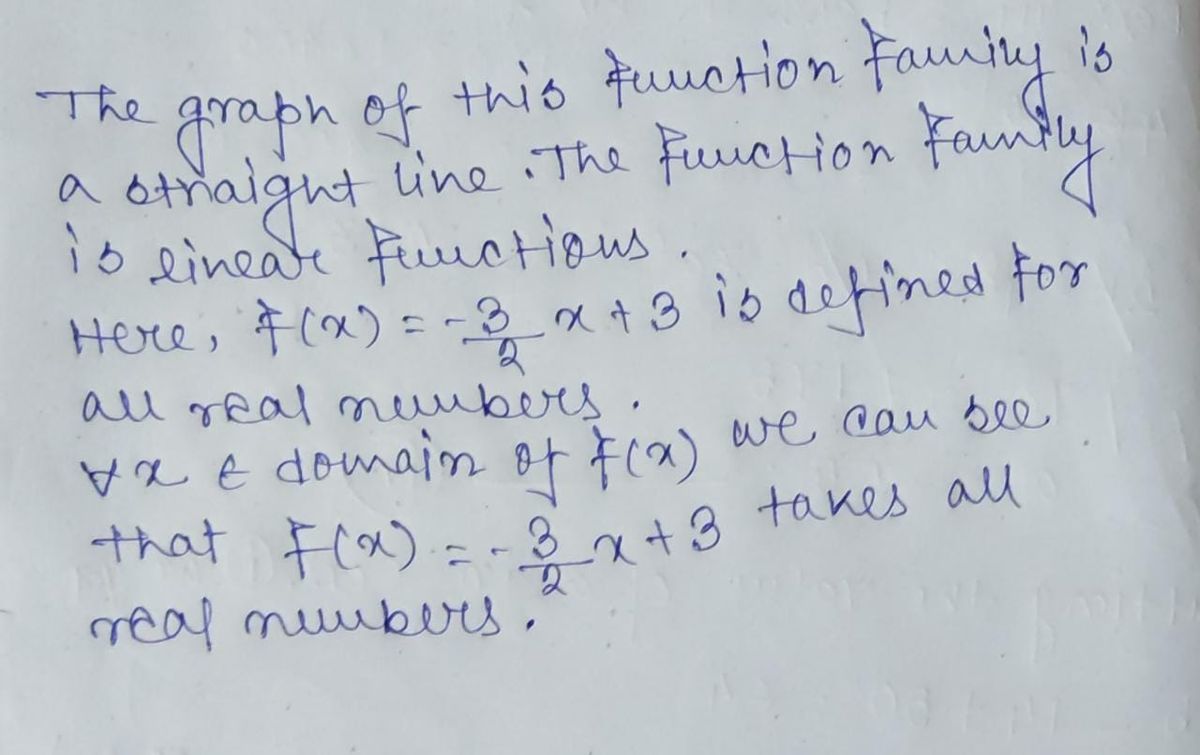 The graph of this function family is
a straight line. The function family
is linear functions.
Here, f(x) = -3/2 x + 3 is defined for
all real numbers.
∀x ∈ domain of f(x) we can see
that f(x) = -3/2 x + 3 takes all
real numbers.